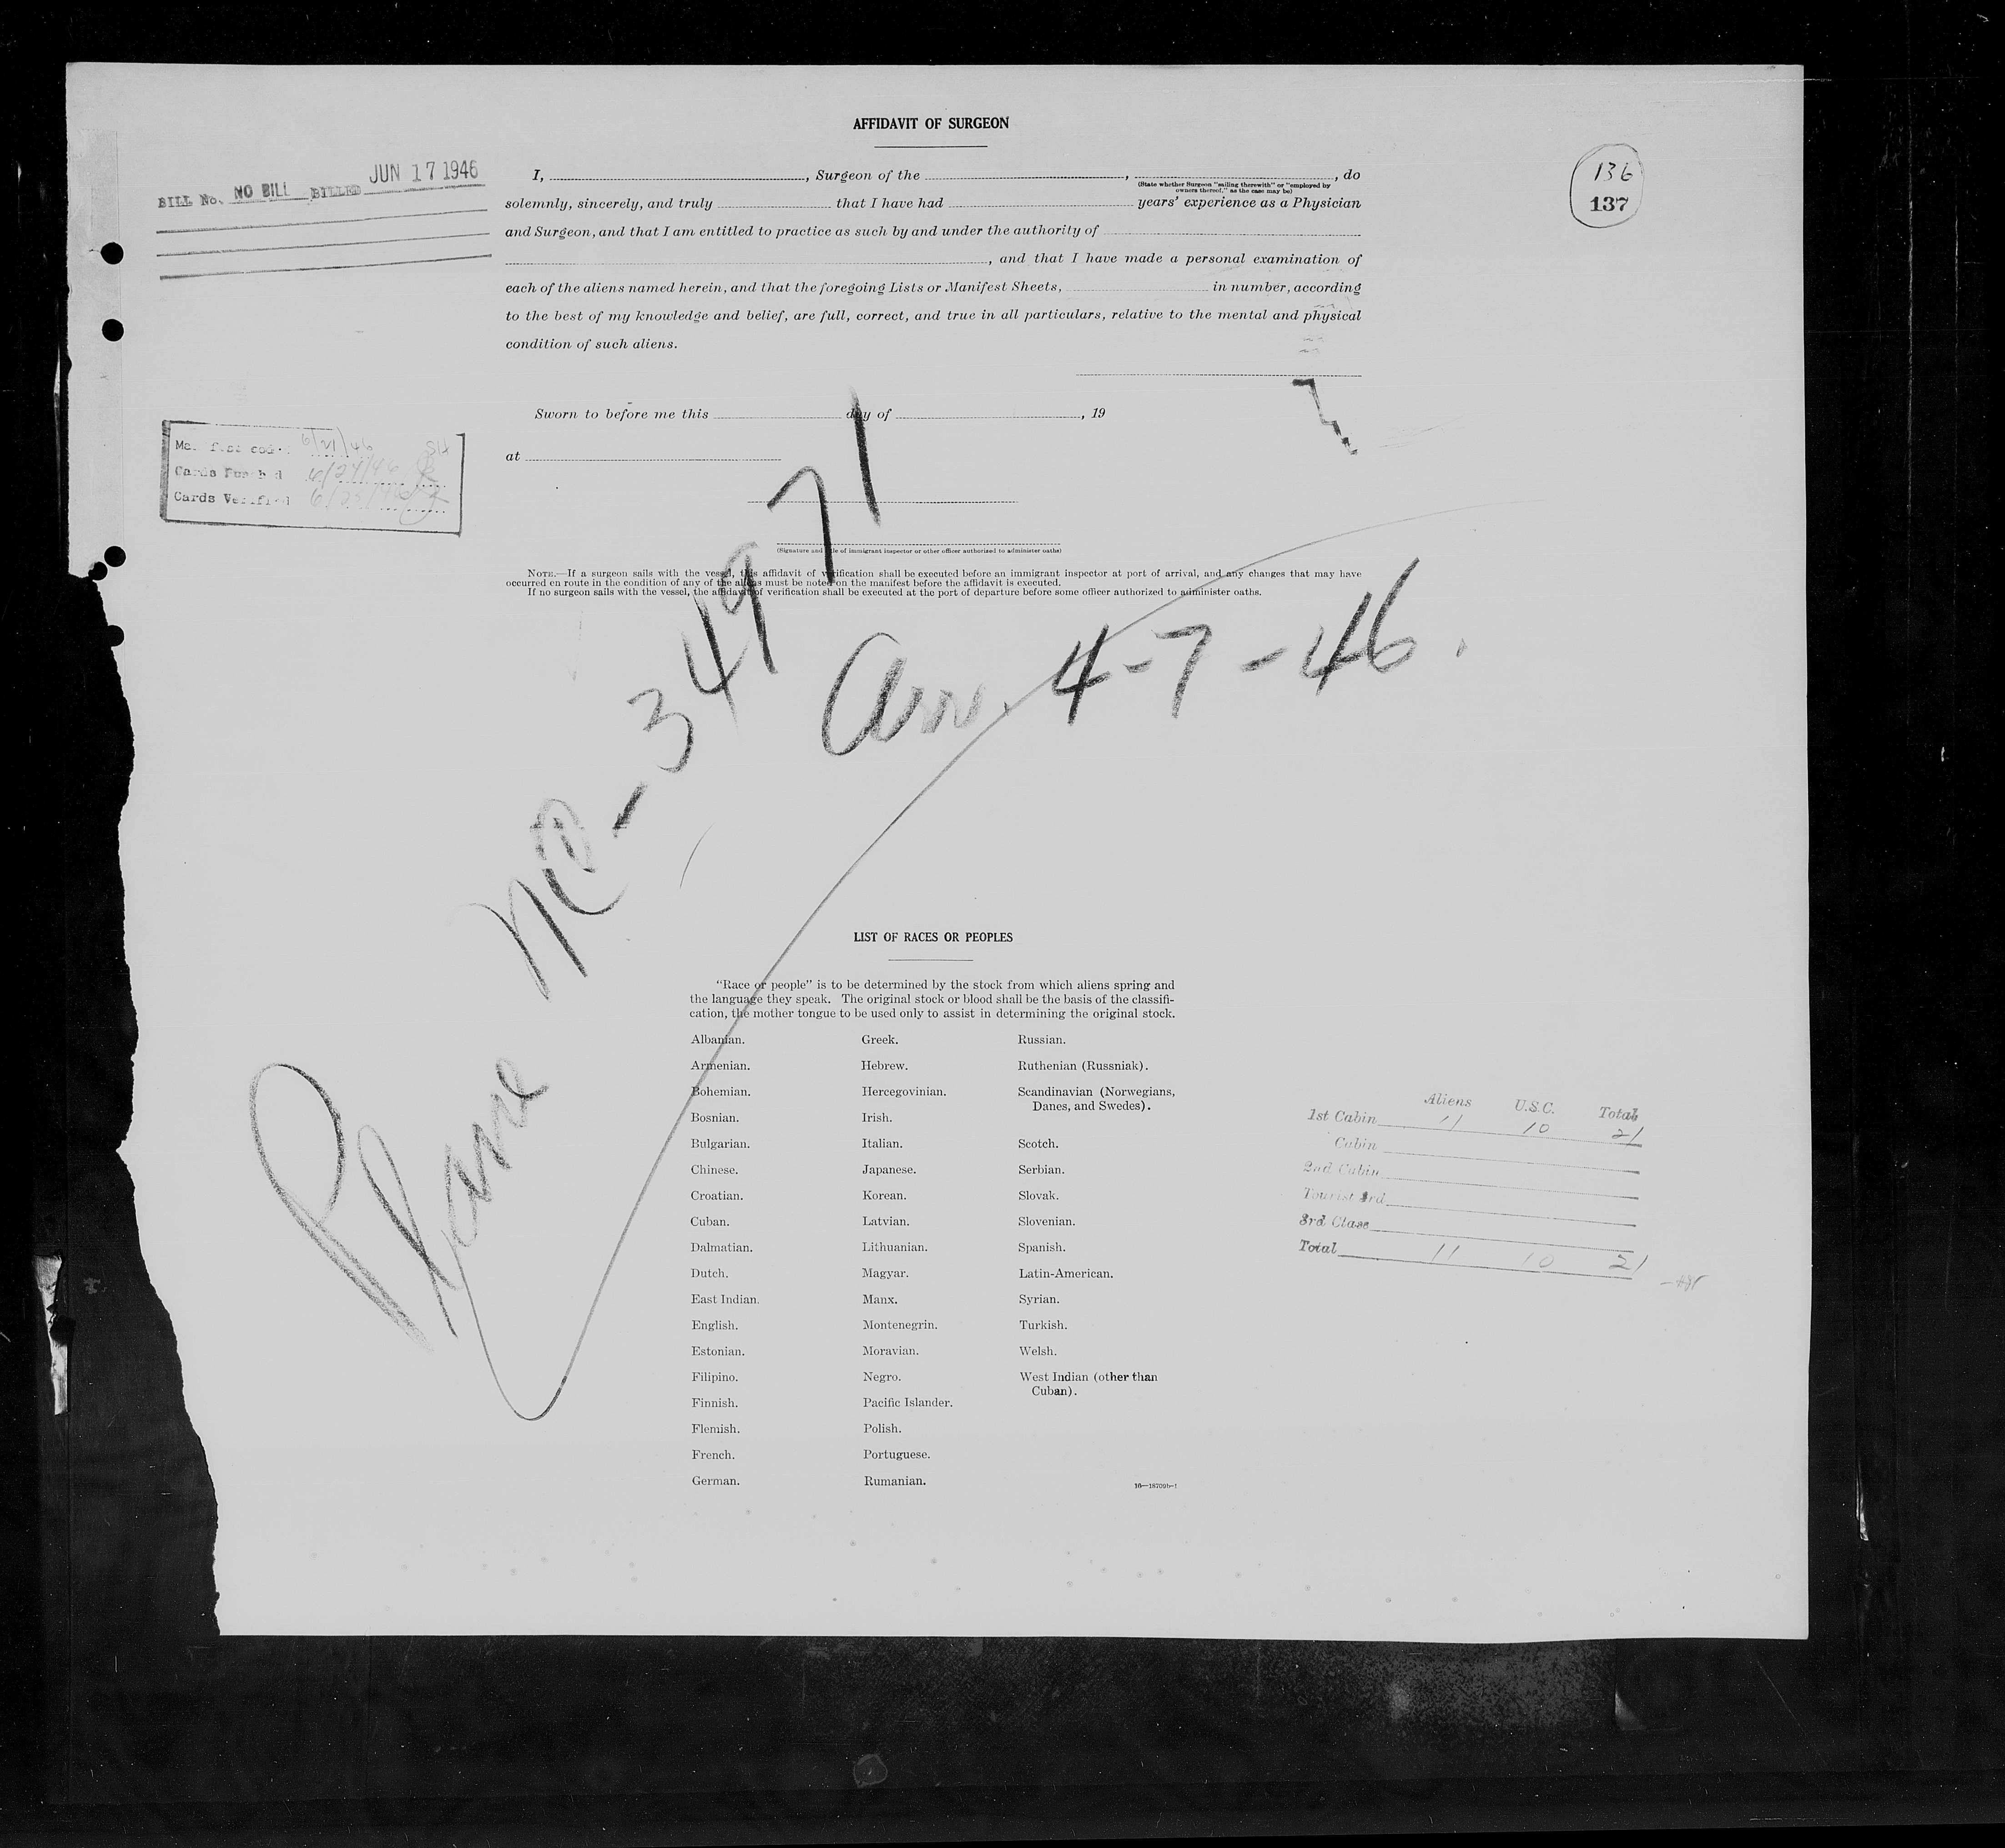 AFFIDAVIT OF SURGEON
BILL No. NO BILL BILLED JUN 17 1946
136
137
I, , Surgeon of the , , do
(State whether Surgeon "sailing therewith" or "employed by
owners thereof," as the case may be)
solemnly, sincerely, and truly that I have had years' experience as a Physician
and Surgeon, and that I am entitled to practice as such by and under the authority of
, and that I have made a personal examination of
each of the aliens named herein, and that the foregoing Lists or Manifest Sheets, in number, according
to the best of my knowledge and belief, are full, correct, and true in all particulars, relative to the mental and physical
condition of such aliens.
Sworn to before me this day of , 19
at
6/21/46 SH
Cards Punched 6/24/46
Cards Verified
(Signature and title of immigrant inspector or other officer authorized to administer oaths)
NOTE.—If a surgeon sails with the vessel, this affidavit of verification shall be executed before an immigrant inspector at port of arrival, and any changes that may have
occurred en route in the condition of any of the aliens must be noted on the manifest before the affidavit is executed.
If no surgeon sails with the vessel, the affidavit of verification shall be executed at the port of departure before some officer authorized to administer oaths.
Plane NC-34971
Arr. 4-7-46.
LIST OF RACES OR PEOPLES
"Race or people" is to be determined by the stock from which aliens spring and
the language they speak. The original stock or blood shall be the basis of the classifi-
cation, the mother tongue to be used only to assist in determining the original stock.
Albanian. Greek. Russian.
Armenian. Hebrew. Ruthenian (Russniak).
Bohemian. Hercegovinian. Scandinavian (Norwegians,
Danes, and Swedes).
Bosnian. Irish.
Bulgarian. Italian. Scotch.
Chinese. Japanese. Serbian.
Croatian. Korean. Slovak.
Cuban. Latvian. Slovenian.
Dalmatian. Lithuanian. Spanish.
Dutch. Magyar. Latin-American.
East Indian. Manx. Syrian.
English. Montenegrin. Turkish.
Estonian. Moravian. Welsh.
Filipino. Negro. West Indian (other than
Cuban).
Finnish. Pacific Islander.
Flemish. Polish.
French. Portuguese.
German. Rumanian.
Aliens U.S.C. Total
1st Cabin 11 10 21
Cabin
2nd Cabin
Tourist 3rd
3rd Class
Total 11 10 21